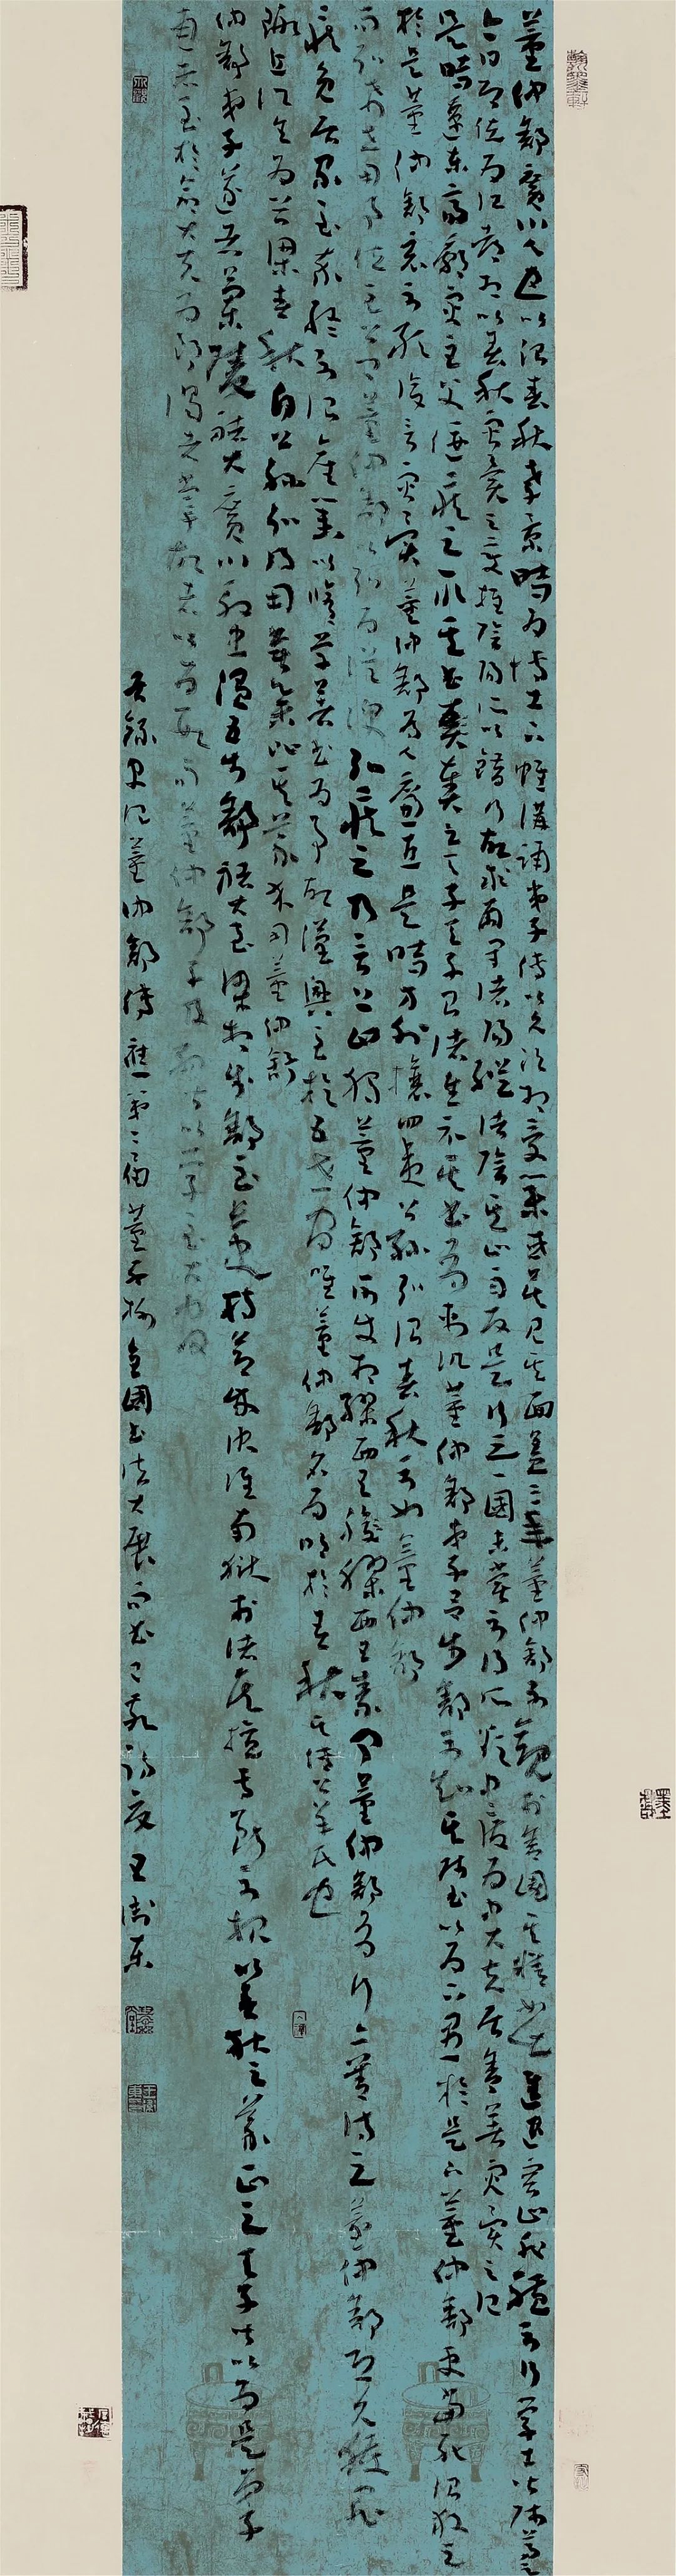 董仲舒廣川人也以治春秋孝景時為博士下帷講誦弟子傳以久次相受業或莫見其面蓋三年董仲舒不觀於舍園其精如此進退容止非禮不行學士皆師尊之
今上即位為江都相以春秋災異之變推陰陽所以錯行故求雨閉諸陽縱諸陰其止雨反是行之一國未嘗不得所欲中廢為中大夫居舍著災異之記
是時遼東高廟災主父偃疾之取其書奏之天子天子召諸生示其書有刺譏董仲舒弟子呂步舒不知其師書以為下愚於是下董仲舒吏當死詔赦之
於是董仲舒竟不敢復言災異董仲舒為人廉直是時方外攘四夷公孫弘治春秋不如董仲舒
而弘希世用事位至公卿董仲舒以弘為從諛弘疾之乃言上曰獨董仲舒可使相膠西王膠西王素聞董仲舒有行亦善待之董仲舒恐久獲罪
疾免居家至卒終不治產業以脩學著書為事故漢興至於五世之間唯董仲舒名為明於春秋其傳公羊氏也
瑕丘江生為穀梁春秋自公孫弘得用嘗集比其義卒用董仲舒
仲舒弟子遂者蘭陵褚大廣川殷忠溫呂步舒褚大至梁相步舒至長史持節使決淮南獄於諸侯擅專斷不報以春秋之義正之天子皆以為是弟子
通者至於命大夫為郎謁者掌故者以百數而董仲舒子及孫皆以學至大官
右錄史記董仲舒傳應第二屆董子杯全國書法大展而書 王樹東